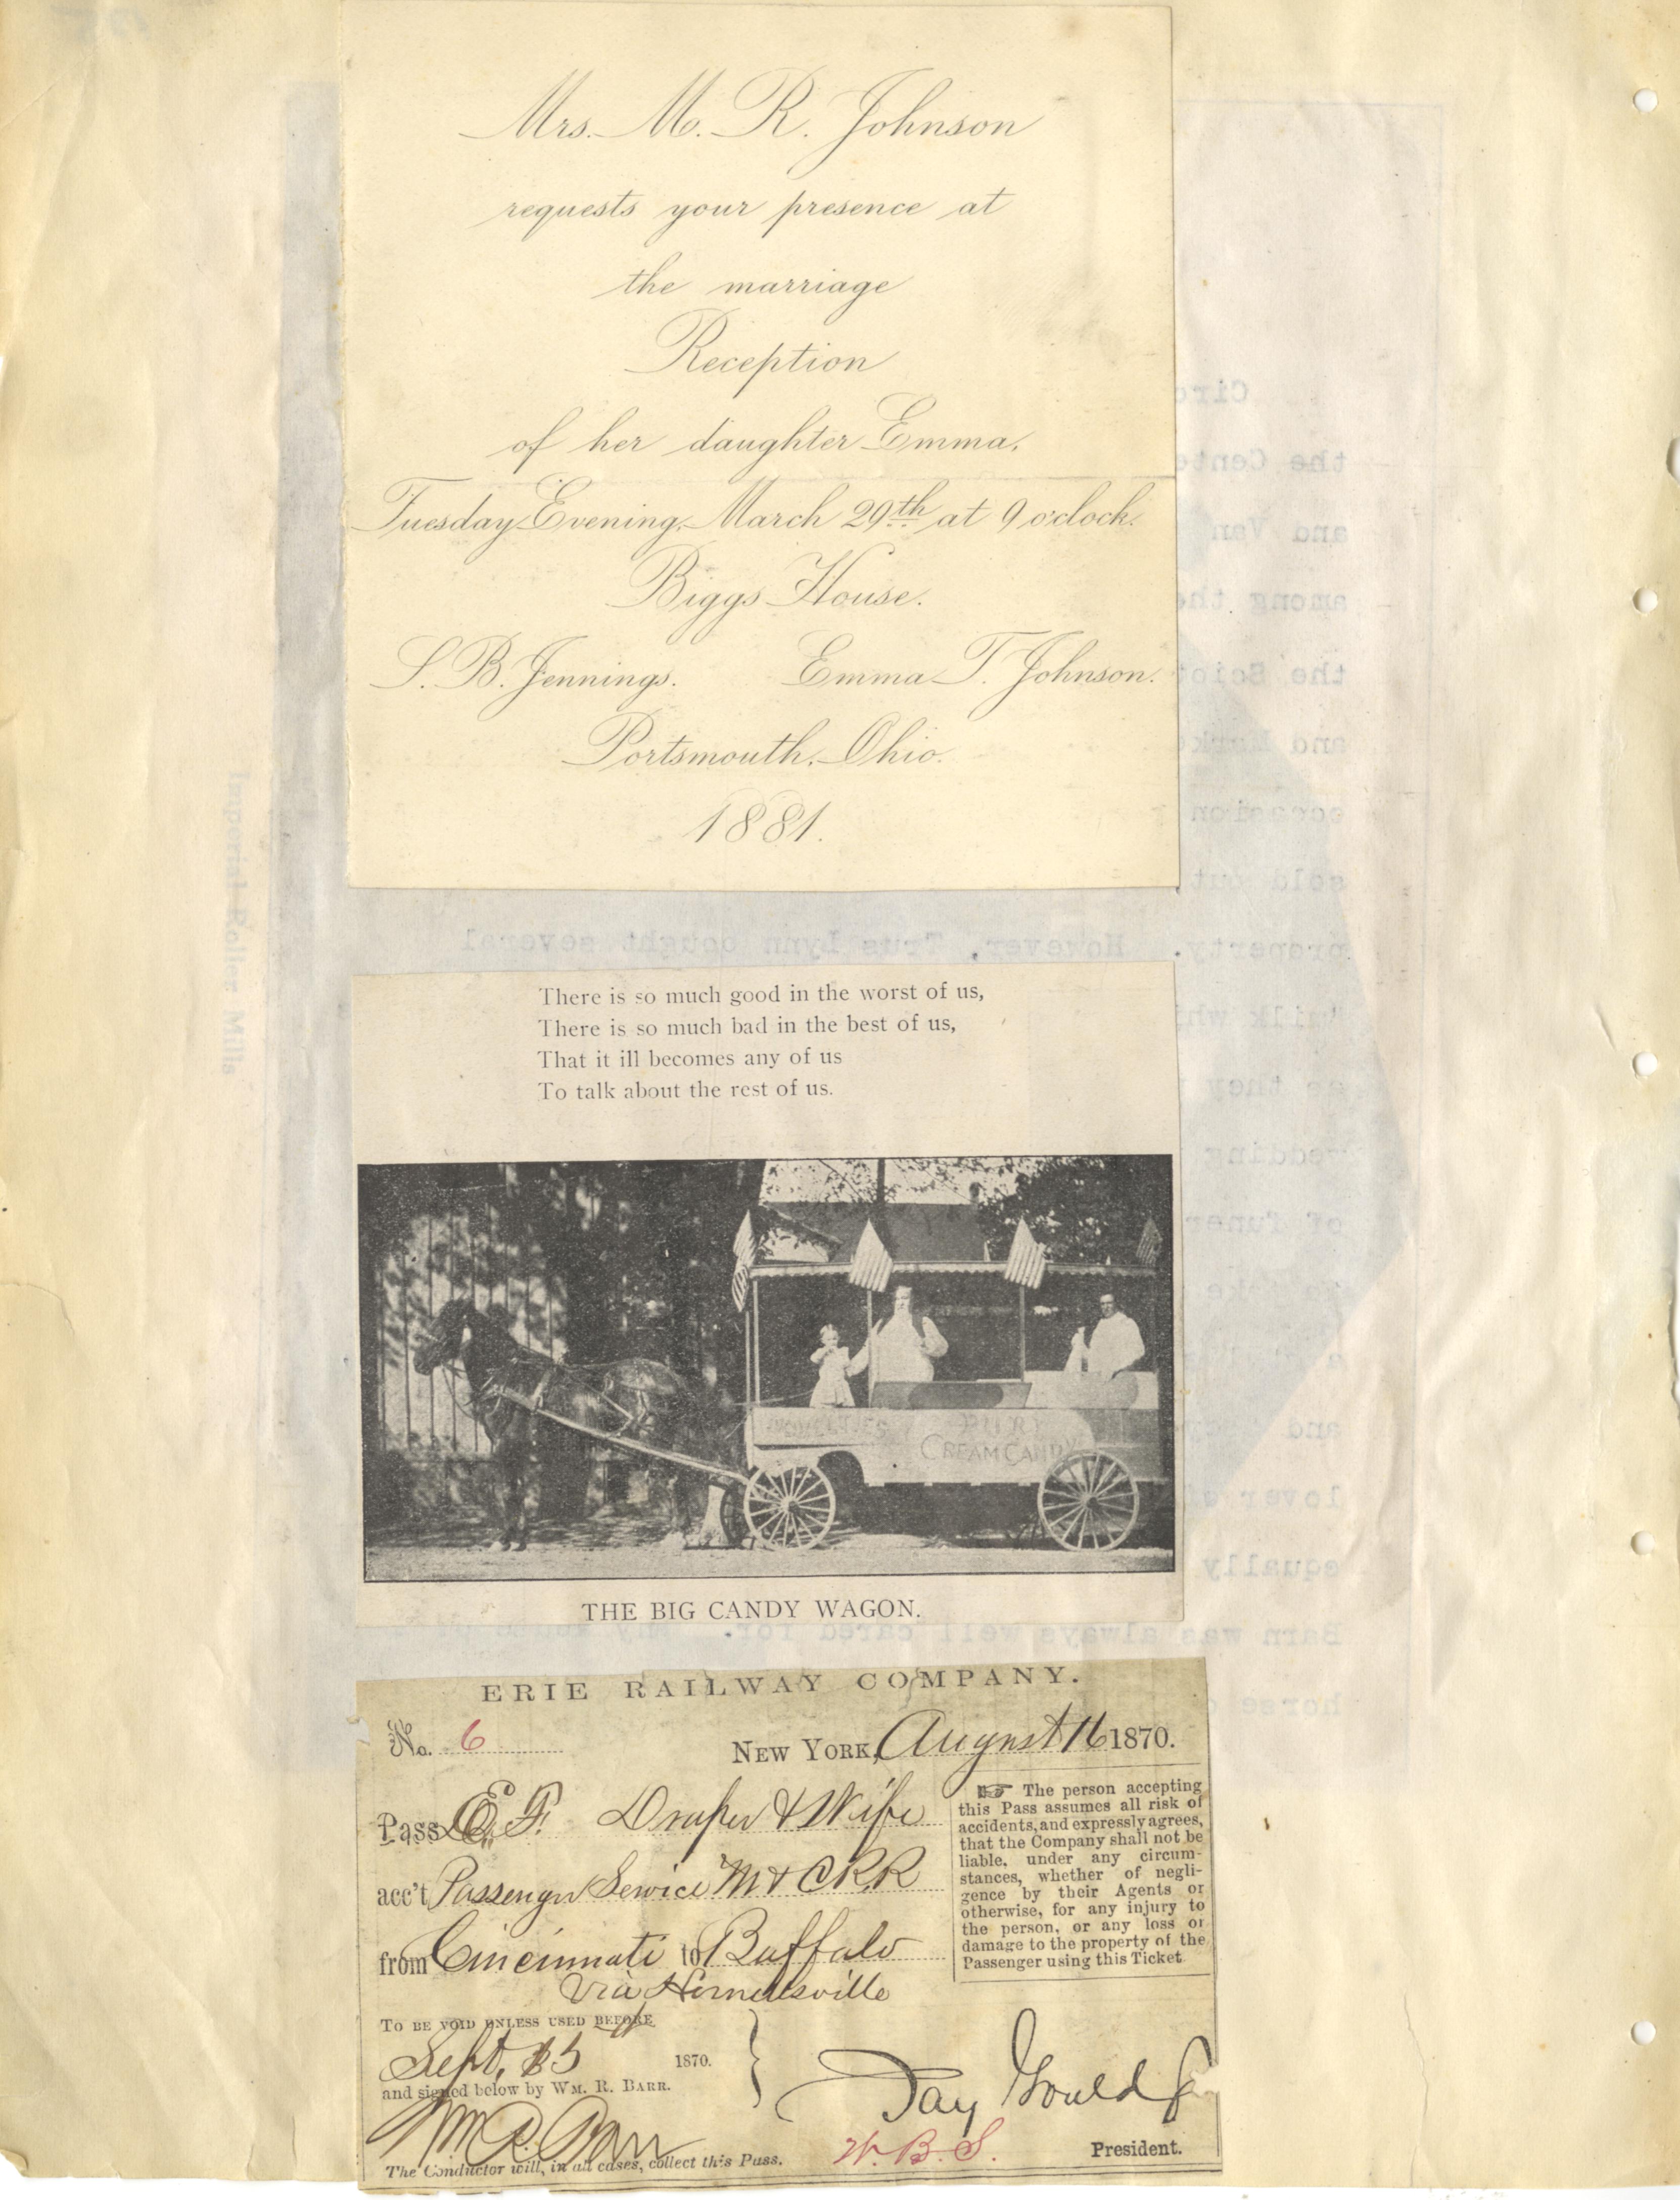 Mrs. M. R. Johnson
requests your presence at
the marriage
Reception
of her daughter Emma,
Tuesday Evening, March 29th at 9 o'clock.
Biggs House.
S. B. Jennings. Emma T. Johnson.
Portsmouth, Ohio.
1881.
There is so much good in the worst of us,
There is so much bad in the best of us,
That it ill becomes any of us
To talk about the rest of us.
PURE
CREAM CANDY
THE BIG CANDY WAGON.
ERIE RAILWAY COMPANY.
No. 6
NEW YORK, August 16 1870.
Pass E. F. Draper & Wife
acc't Passenger Service M & C RR
from Cincinnati to Buffalo
Via Hornellsville
☞ The person accepting
this Pass assumes all risk of
accidents, and expressly agrees,
that the Company shall not be
liable, under any circum-
stances, whether of negli-
gence by their Agents or
otherwise, for any injury to
the person, or any loss or
damage to the property of the
Passenger using this Ticket.
TO BE VOID UNLESS USED BEFORE
Sept. 15 1870.
and signed below by WM. R. BARR.
Wm R. Barr
Jay Gould
W. B. S. President.
The Conductor will, in all cases, collect this Pass.
Imperial Roller Mills
property. However, Trus Lynn bought several
Barn was always well cared for.
horse